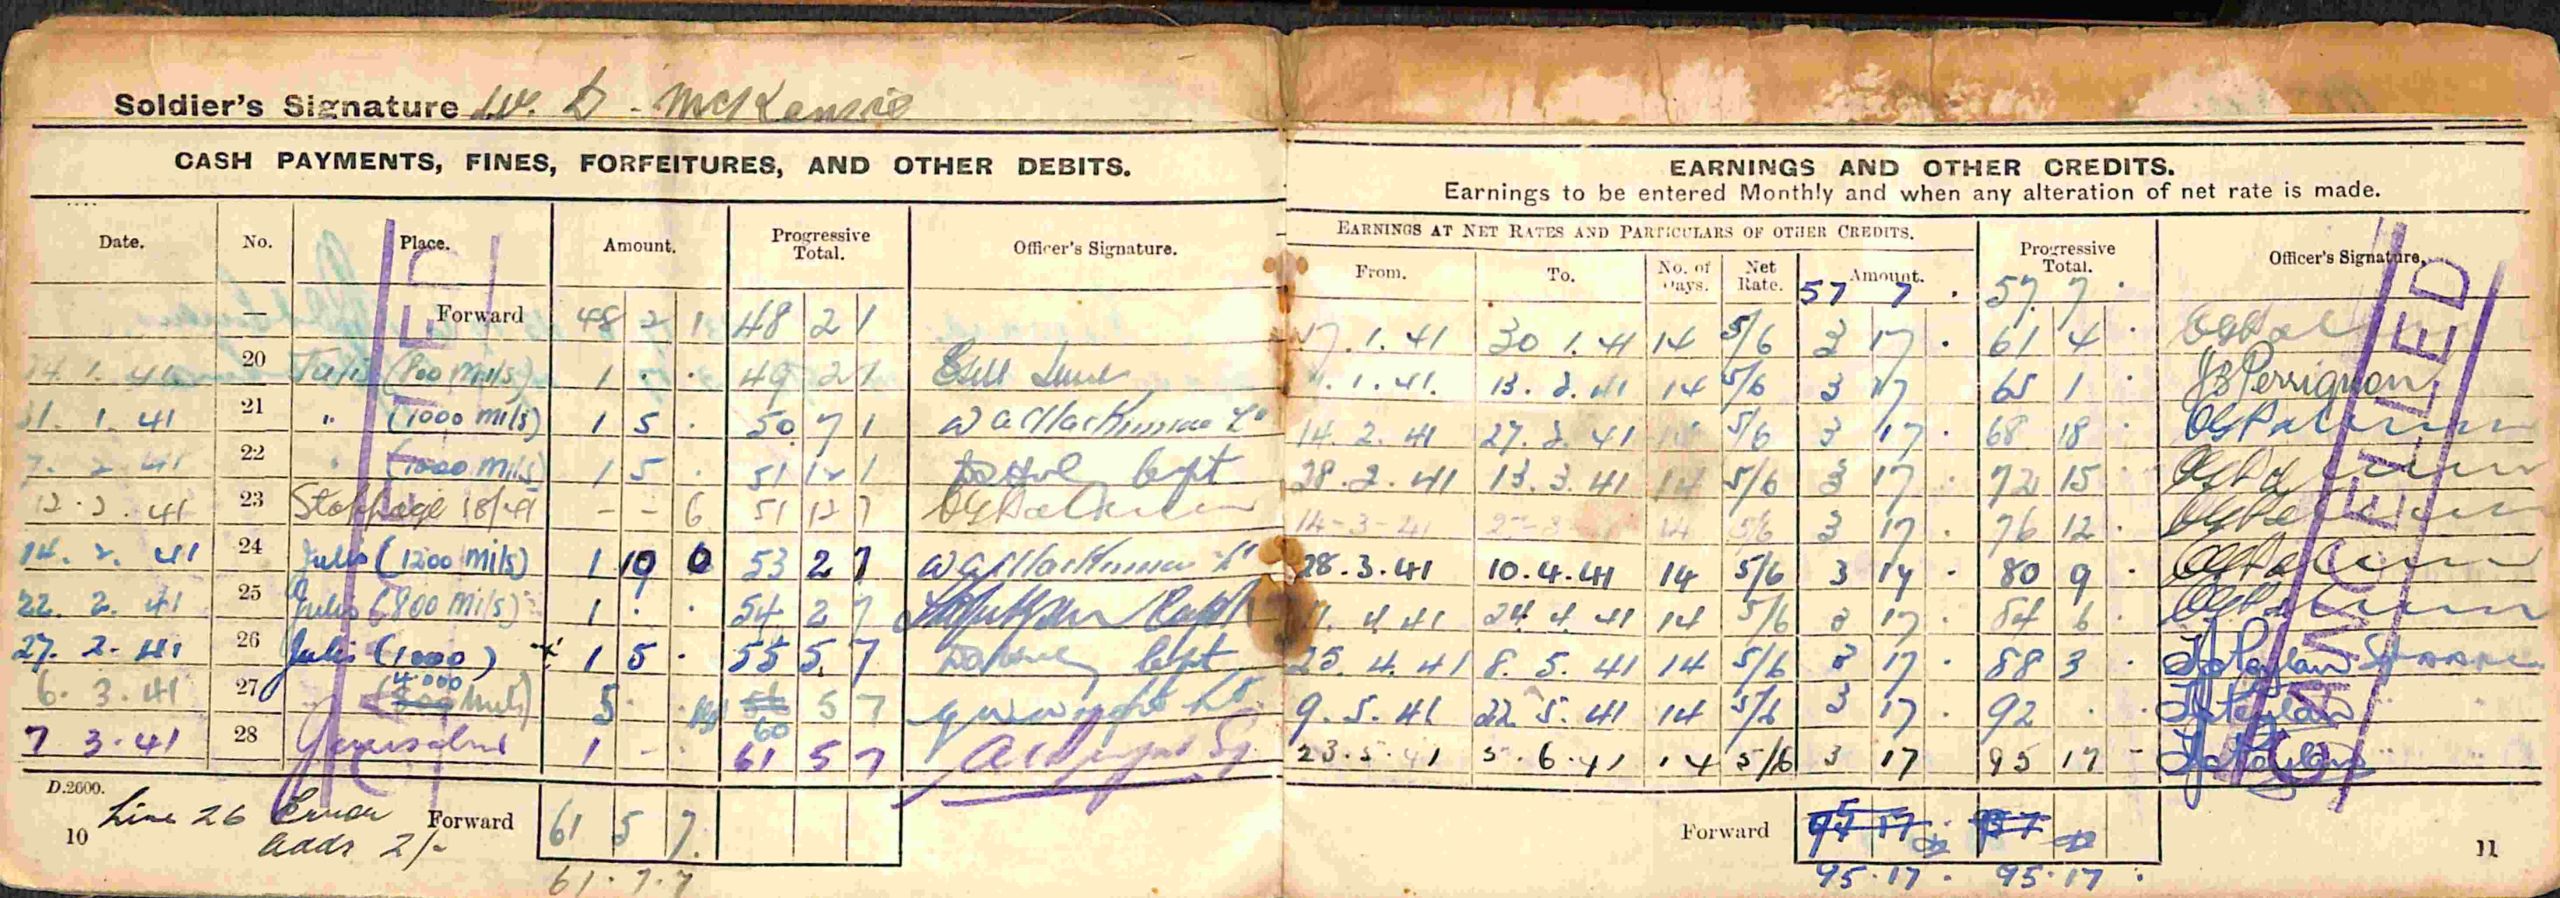 Soldier's Signature W. D. McKenzie
CASH PAYMENTS, FINES, FORFEITURES, AND OTHER DEBITS.
Date. No. Place. Amount. Progressive Total. Officer's Signature.
— Forward 48 2 1 48 2 1
24.1.41 20 Julis (800 mils) 1 . . 49 2 1
31.1.41 21 " (1000 mils) 1 5 . 50 7 1 W A MacKinnon Lt
7.2.41 22 " (1000 mils) 1 5 . 51 12 1 Capt
12.2.41 23 Stoppage 18/41 - - 6 51 12 7
14.2.41 24 Julis (1200 mils) 1 10 0 53 2 7 W A MacKinnon Lt
22.2.41 25 Julis (800 mils) 1 . . 54 2 7 Capt
27.2.41 26 Julis (1000) x 1 5 . 55 5 7 Capt
6.3.41 27 4.000 (800 mils) 5 . . 56 60 5 7 Lt
7 3.41 28 Jerusalem 1 - . 61 5 7
D.2600.
Line 26 Error adds 2/-
Forward 61 5 7
61.7.7
10
EARNINGS AND OTHER CREDITS.
Earnings to be entered Monthly and when any alteration of net rate is made.
EARNINGS AT NET RATES AND PARTICULARS OF OTHER CREDITS. Progressive Total. Officer's Signature.
From. To. No. of Days. Net Rate. Amount.
57 7 . 57 7 .
17.1.41 30 1.41 14 5/6 3 17 . 61 4 .
1.41. 13.2.41 14 5/6 3 17 65 1 . J B Perrignon
14.2.41 27.2.41 14 5/6 3 17 . 68 18 .
28.2.41 13.3.41 14 5/6 3 17 . 72 15 .
14-3-41 14 5/6 3 17 . 76 12 .
28.3.41 10.4.41 14 5/6 3 17 . 80 9 .
11.4.41 24.4.41 14 5/6 3 17 . 84 6 .
25.4.41 8.5.41 14 5/6 3 17 . 88 3 .
9.5.41 22.5.41 14 5/6 3 17 . 92 . .
23.5.41 5.6.41 14 5/6 3 17 95 17 -
Forward
95.17 . 95.17 .
11
CANCELLED